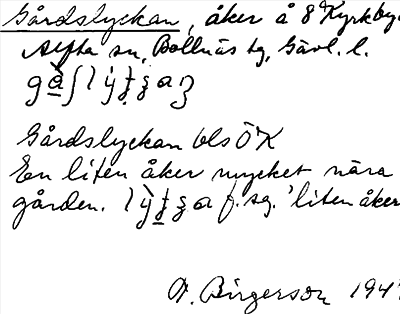 Gårdslyckan, åker å 8 Kyrkby.
Alfta sn, Bollnäs tg, Gävl. l.
Gårdslyckan bls ÖK
En liten åker mycket nära
gården. f. sg. 'liten åker
Birgerson 194